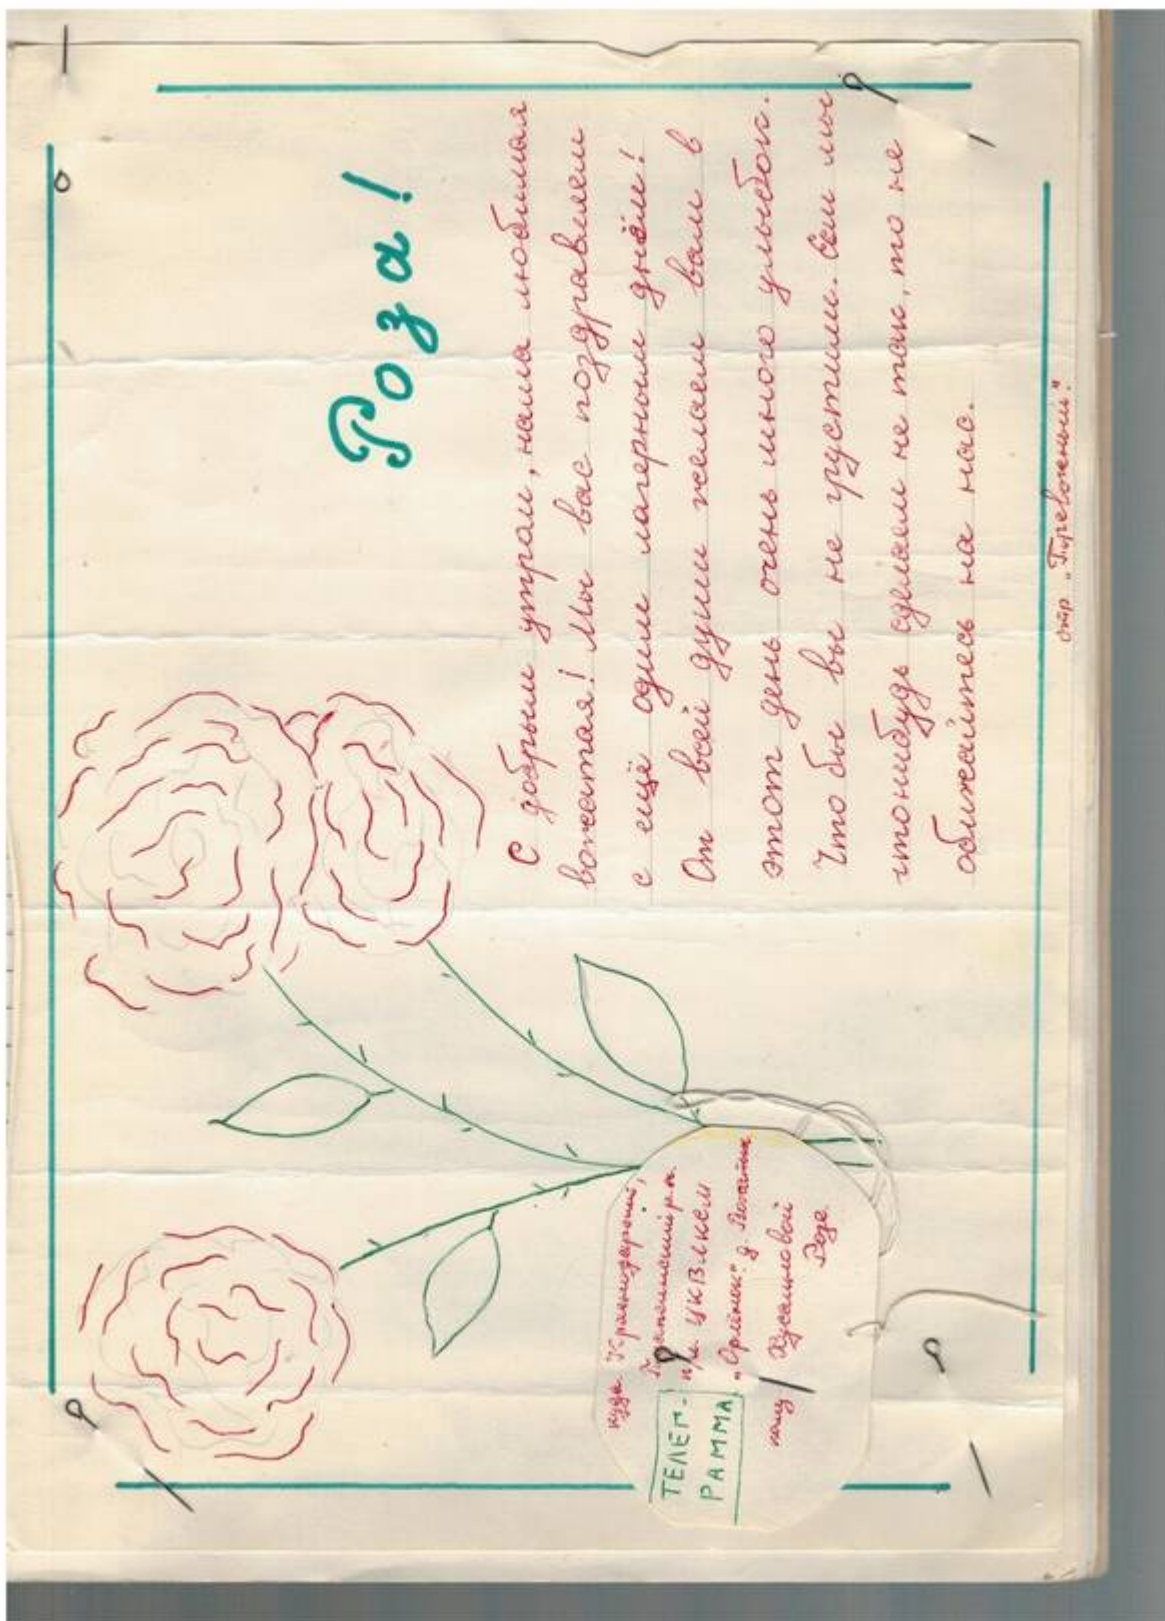 Роза!
С добрым утром, наша любимая
вожатая! Мы вас поздравляем
с ещё одним лагерным днём!
От всей души желаем вам в
этот день очень много улыбок.
Что бы вы не грустили. Если мы
чтонибудь сделаем не так, то не
обижайтесь на нас.
отр „Тревожный".
ТЕЛЕГ-
РАММА
куда Краснодарский,
Туапсинский р-н.
п/л ЦК ВЛКСМ
„Орлёнок" д.
кому Хусаиновой
Розе